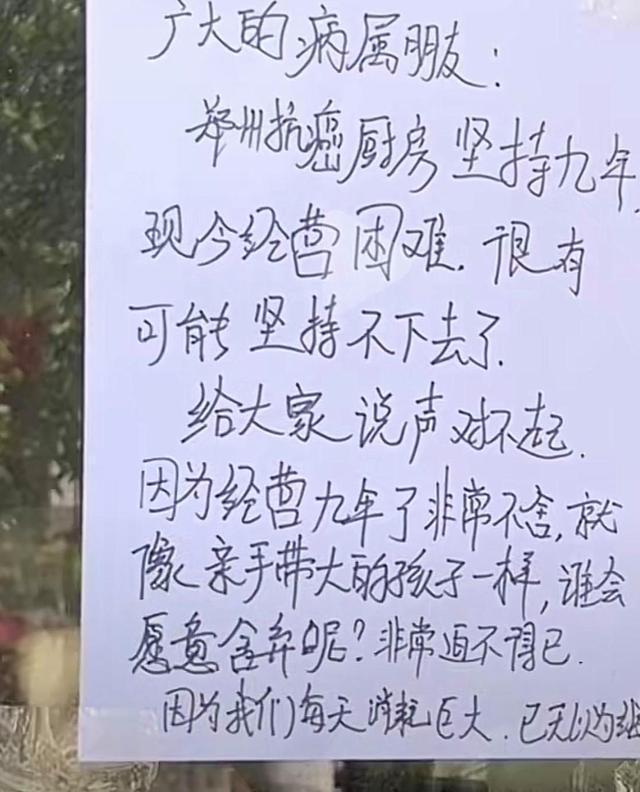 广大的病属朋友：
郑州抗癌厨房坚持九年，
现今经营困难．很有
可能坚持不下去了．
给大家说声对不起．
因为经营九年了非常不舍，就
像亲手带大的孩子一样，谁会
愿意舍弃呢？非常迫不得已．
因为我们每天消耗巨大．已无以为继